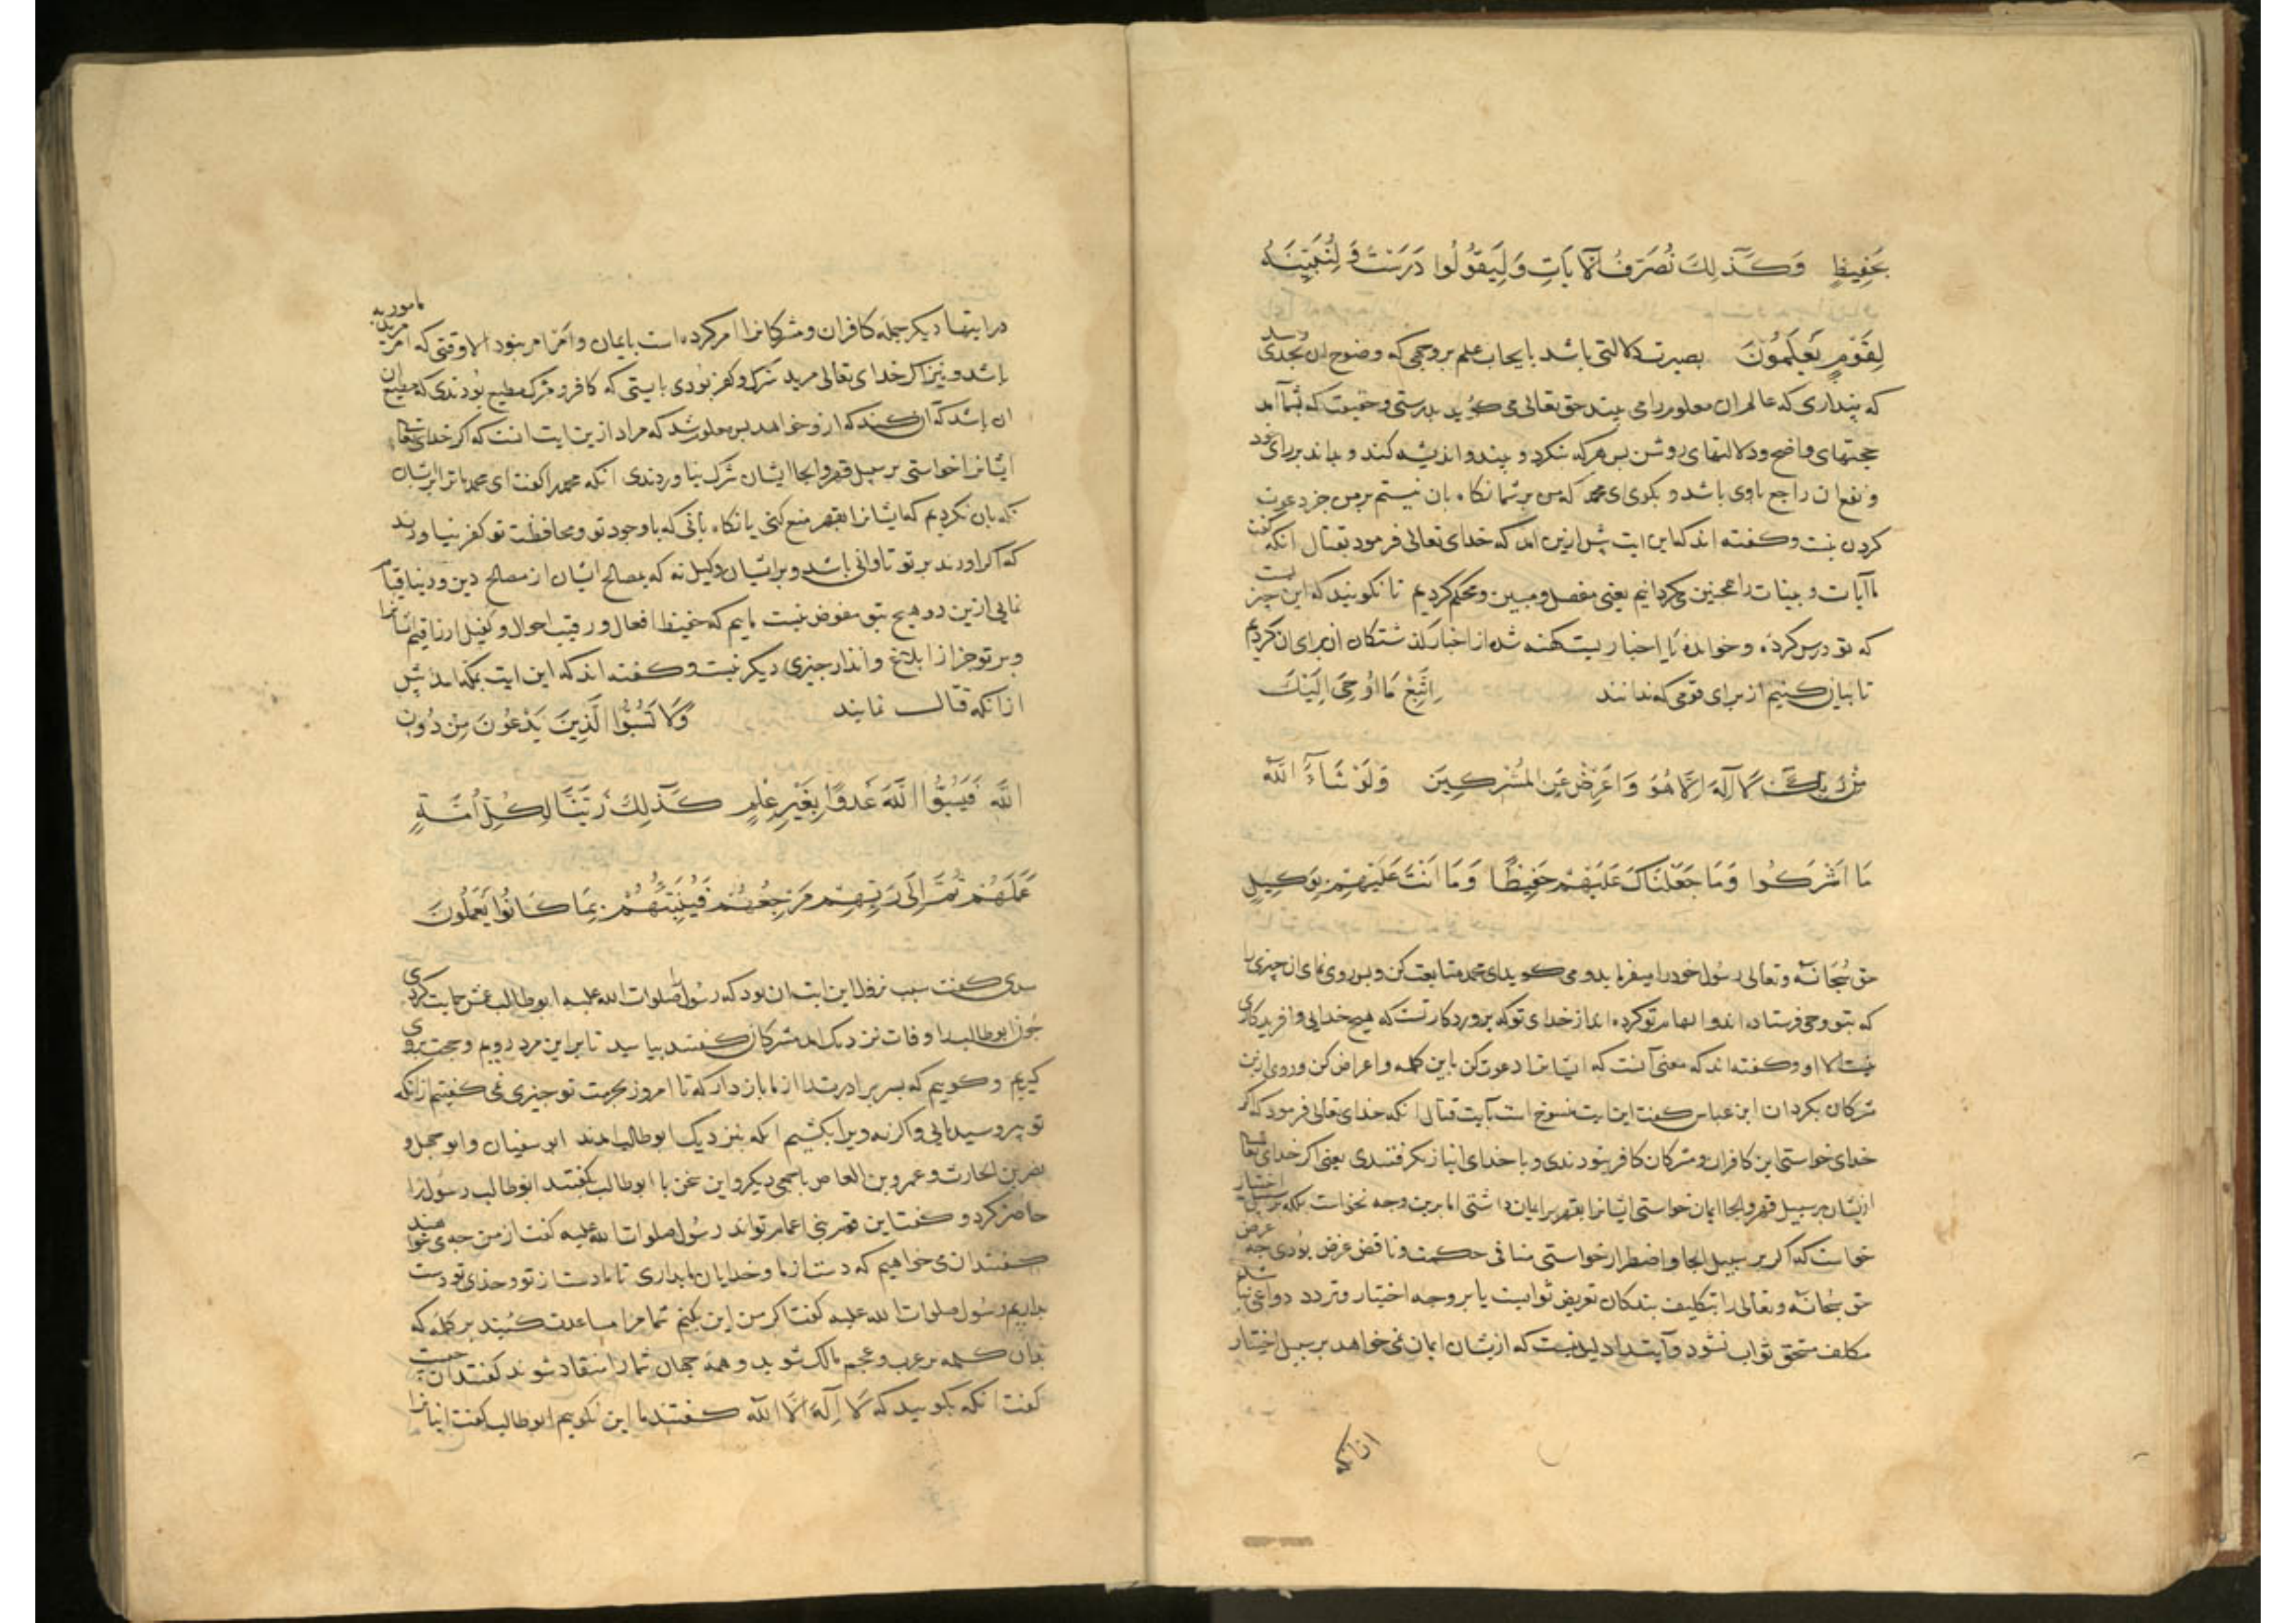 بِحَفِيظٍ وَكَذَٰلِكَ نُصَرِّفُ الْآيَاتِ وَلِيَقُولُوا دَرَسْتَ وَلِنُبَيِّنَهُ
لِقَوْمٍ يَعْلَمُونَ بصیرت دلالتی باشد بایجاب علم بر وجهی که وضوح ان بحدی
که پنداری که عالم ان معلوم را می بیند حق تعالی می کوید بدرستی و حقیقت که بشما آمد
حجتهای واضح و دلالتهای روشن بس هرکه بنکرد و ببیند و اندیشه کند و بداند برای خود
و نفع ان راجع باوی باشد و بکوی ای محمد که من بر شما نکاه بان نیستم بر من جز دعوت
کردن نیست و کفته اند که این ایت پیش ازین امد که خدای تعالی فرمود بقتال انکه کفت
ما آیات و بینات را همچنین می کردانیم یعنی مفصل و مبین و محکم کردیم تا نکویند که این چیزیست
که تو درس کرده و خوانده یا اخباریست کهنه شده از اخبار کذشتکان از برای ان کردیم
تا بیان کنیم از برای قومی که بدانند اِتَّبِعْ مَا اُوحِيَ اِلَيْكَ
مِنْ رَبِّكَ لَا اِلَهَ اِلَّا هُوَ وَاَعْرِضْ عَنِ الْمُشْرِكِينَ وَلَوْ شَاءَ اللَّهُ
مَا اَشْرَكُوا وَمَا جَعَلْنَاكَ عَلَيْهِمْ حَفِيظًا وَمَا اَنْتَ عَلَيْهِمْ بِوَكِيلٍ
حق سبحانه و تعالی رسول خود را میفرماید و می کوید ای محمد متابعت کن و بس روی نمای ان چیزی را
که بتو وحی فرستاده اند و الهام تو کرده اند از خدای تو که بروردکار تست که هیچ خدایی و افریدکاری
نیست الا او و کفته اند که معنی آنست که ایشانرا دعوت کن باین کلمه و اعراض کن و روی ازین
مشرکان بکردان ابن عباس کفت این ایت منسوخ است بآیت قتال انکه خدای تعالی فرمود که اکر
خدای خواستی این کافران و مشرکان کافر نبودندی و با خدای انباز نکرفتندی یعنی اکر خدای تعالی
ازیشان بر سبیل قهر و الجا ایمان خواستی ایشانرا بقهر بر ایمان داشتی اما برین وجه نخواست بلکه بر سبیل اختیار
خواست که اکر بر سبیل الجا و اضطرار خواستی منافی حکمت و ناقض غرض بودی چه غرض
حق سبحانه و تعالی را بتکلیف بندکان تعریض ثوابست یا بر وجه اختیار و تردد دواعی نباشد
مکلف مستحق ثواب نشود و آیت دلیل نیست که ازیشان ایمان نمی خواهد بر سبیل اختیار
در ایتها دیکر جمله کافران و مشرکانرا امر کرده است بایمان و امر امر نبود الا وقتی که امر مرید مامور به
باشد و نیز اکر خدای تعالی مرید شرک و کفر بودی بایستی که کافر و مشرک مطیع بودندی که مطیع ان
ان باشد که آن کند که ازو خواهد بس معلوم شد که مراد ازین ایت انست که اکر خدای تعالی
ایشانرا خواستی بر سبیل قهر و الجا ایشان شرک نیاوردندی انکه محمد را کفت ای محمد ما ترا بر ایشان
نکه بان نکردیم که ایشانرا بقهر منع کنی یا نکاه بانی که با وجود تو و محافظت تو کفر نیاورند
که اکر اورند بر تو تاوانی باشد و بر ایشان وکیل نه که بمصالح ایشان از مصالح دین و دنیا قیام
نمایی ازین دو هیچ بتو مفوض نیست ماییم که حفیظ افعال و رقیب احوال و کفیل ارزاقیم ایشانرا
و بر تو جز از ابلاغ و انذار چیزی دیکر نیست و کفته اند که این ایت بمکه امد پیش
از انکه قتال نمایند وَلَا تَسُبُّوا الَّذِينَ يَدْعُونَ مِنْ دُونِ
اللَّهِ فَيَسُبُّوا اللَّهَ عَدْوًا بِغَيْرِ عِلْمٍ كَذَلِكَ زَيَّنَّا لِكُلِّ اُمَّةٍ
عَمَلَهُمْ ثُمَّ اِلَى رَبِّهِمْ مَرْجِعُهُمْ فَيُنَبِّئُهُمْ بِمَا كَانُوا يَعْمَلُونَ
سدی کفت سبب نزول این ایت ان بود که رسول را صلوات الله علیه ابوطالب عمش حمایت کردی
چون ابوطالب را وفات نزدیک امد مشرکان کفتند بیایید تا بر این مرد رویم و حجت بروی
کیریم و کوییم که بسر برادرت را از ما باز دار که تا امروز بحرمت تو چیزی نمی کفتیم از انکه
تو پیر و سید مایی و اکرنه ویرا بکشیم انکه بنزدیک ابوطالب امدند ابوسفیان و ابوجهل و
نضر بن الحارث و عمرو بن العاص با جمعی دیکر و این سخن با ابوطالب بکفتند ابوطالب رسول را
حاضر کرد و کفت این قوم بنی اعمام تواند رسول صلوات الله علیه کفت از من چه می خواهند
کفتند ان می خواهیم که دست از ما و خدایان ما بداری تا ما دست از تو و خدای تو دست
بداریم رسول صلوات الله علیه کفت اکر من این بکنم شما مرا مساعدت کنید بر کلمه که
بدان کلمه بر عرب و عجم مالک شوید و همه جهان شما را منقاد شوند کفتند ان چیست
کفت انکه بکویید که لَا اِلَهَ اِلَّا الله کفتند ما این نکوییم ابوطالب کفت ایشانرا